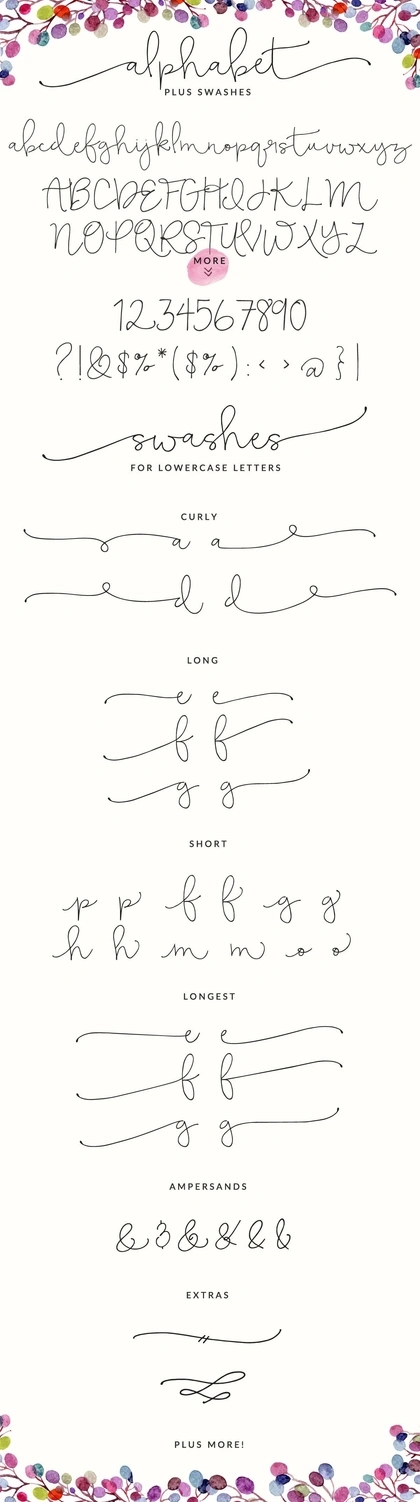 alphabet
PLUS SWASHES
abcdefghijklmnopqrstuvwxyz
ABCDEFGHIJKLM
NOPQRSTUVWXYZ
MORE
1234567890
?!&$%*($%):‹›@}|
swashes
FOR LOWERCASE LETTERS
CURLY
a a
d d
LONG
e e
f f
g g
SHORT
p p f f g g
h h m m o o
LONGEST
e e
f f
g g
AMPERSANDS
&&&&&&
EXTRAS
PLUS MORE!